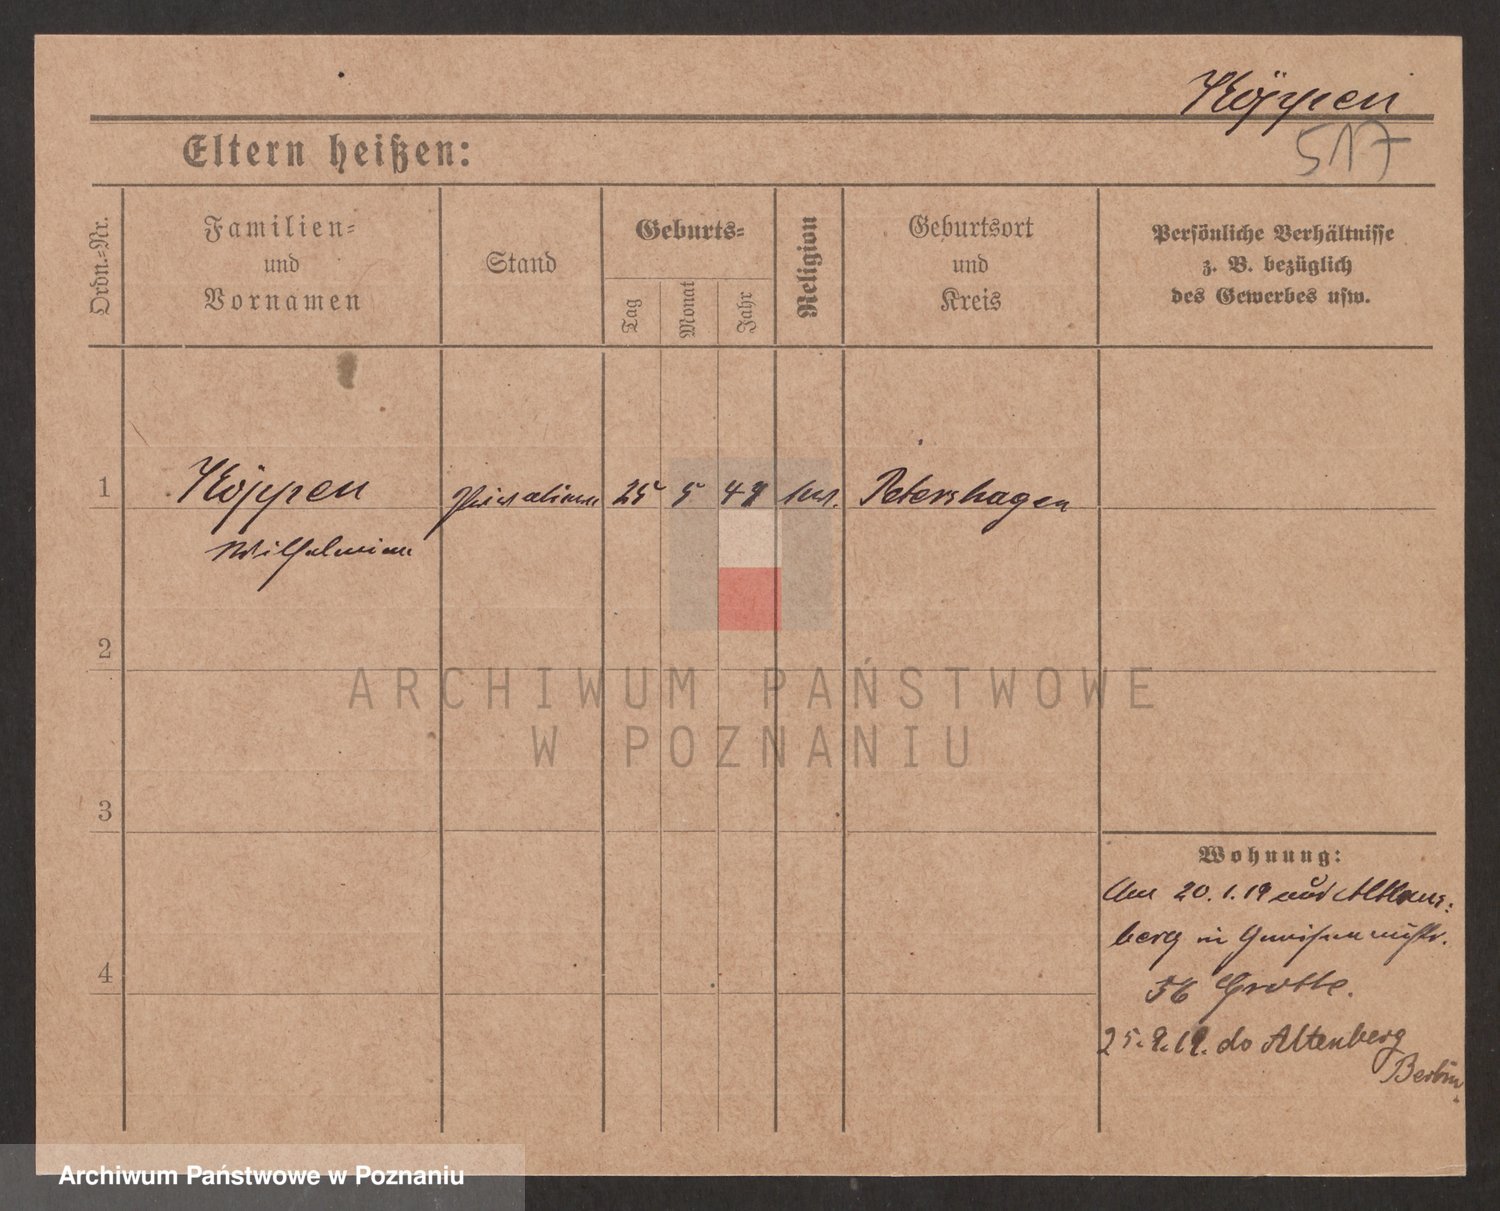 Köppen
517
Eltern heißen:
Ordn.-Nr.
Familien-
und
Vornamen
Stand
Geburts-
Tag
Monat
Jahr
Religion
Geburtsort
und
Kreis
Persönliche Verhältnisse
z. B. bezüglich
des Gewerbes usw.
1
Köppen
25 5
Petershagen
Wilhelmine
2
ARCHIWUM PAŃSTWOWE
W POZNANIU
3
Wohnung:
Am 20.1.19
berg in
56 Grotte.
25.9.19. do Altenberg
Berlin.
4
Archiwum Państwowe w Poznaniu